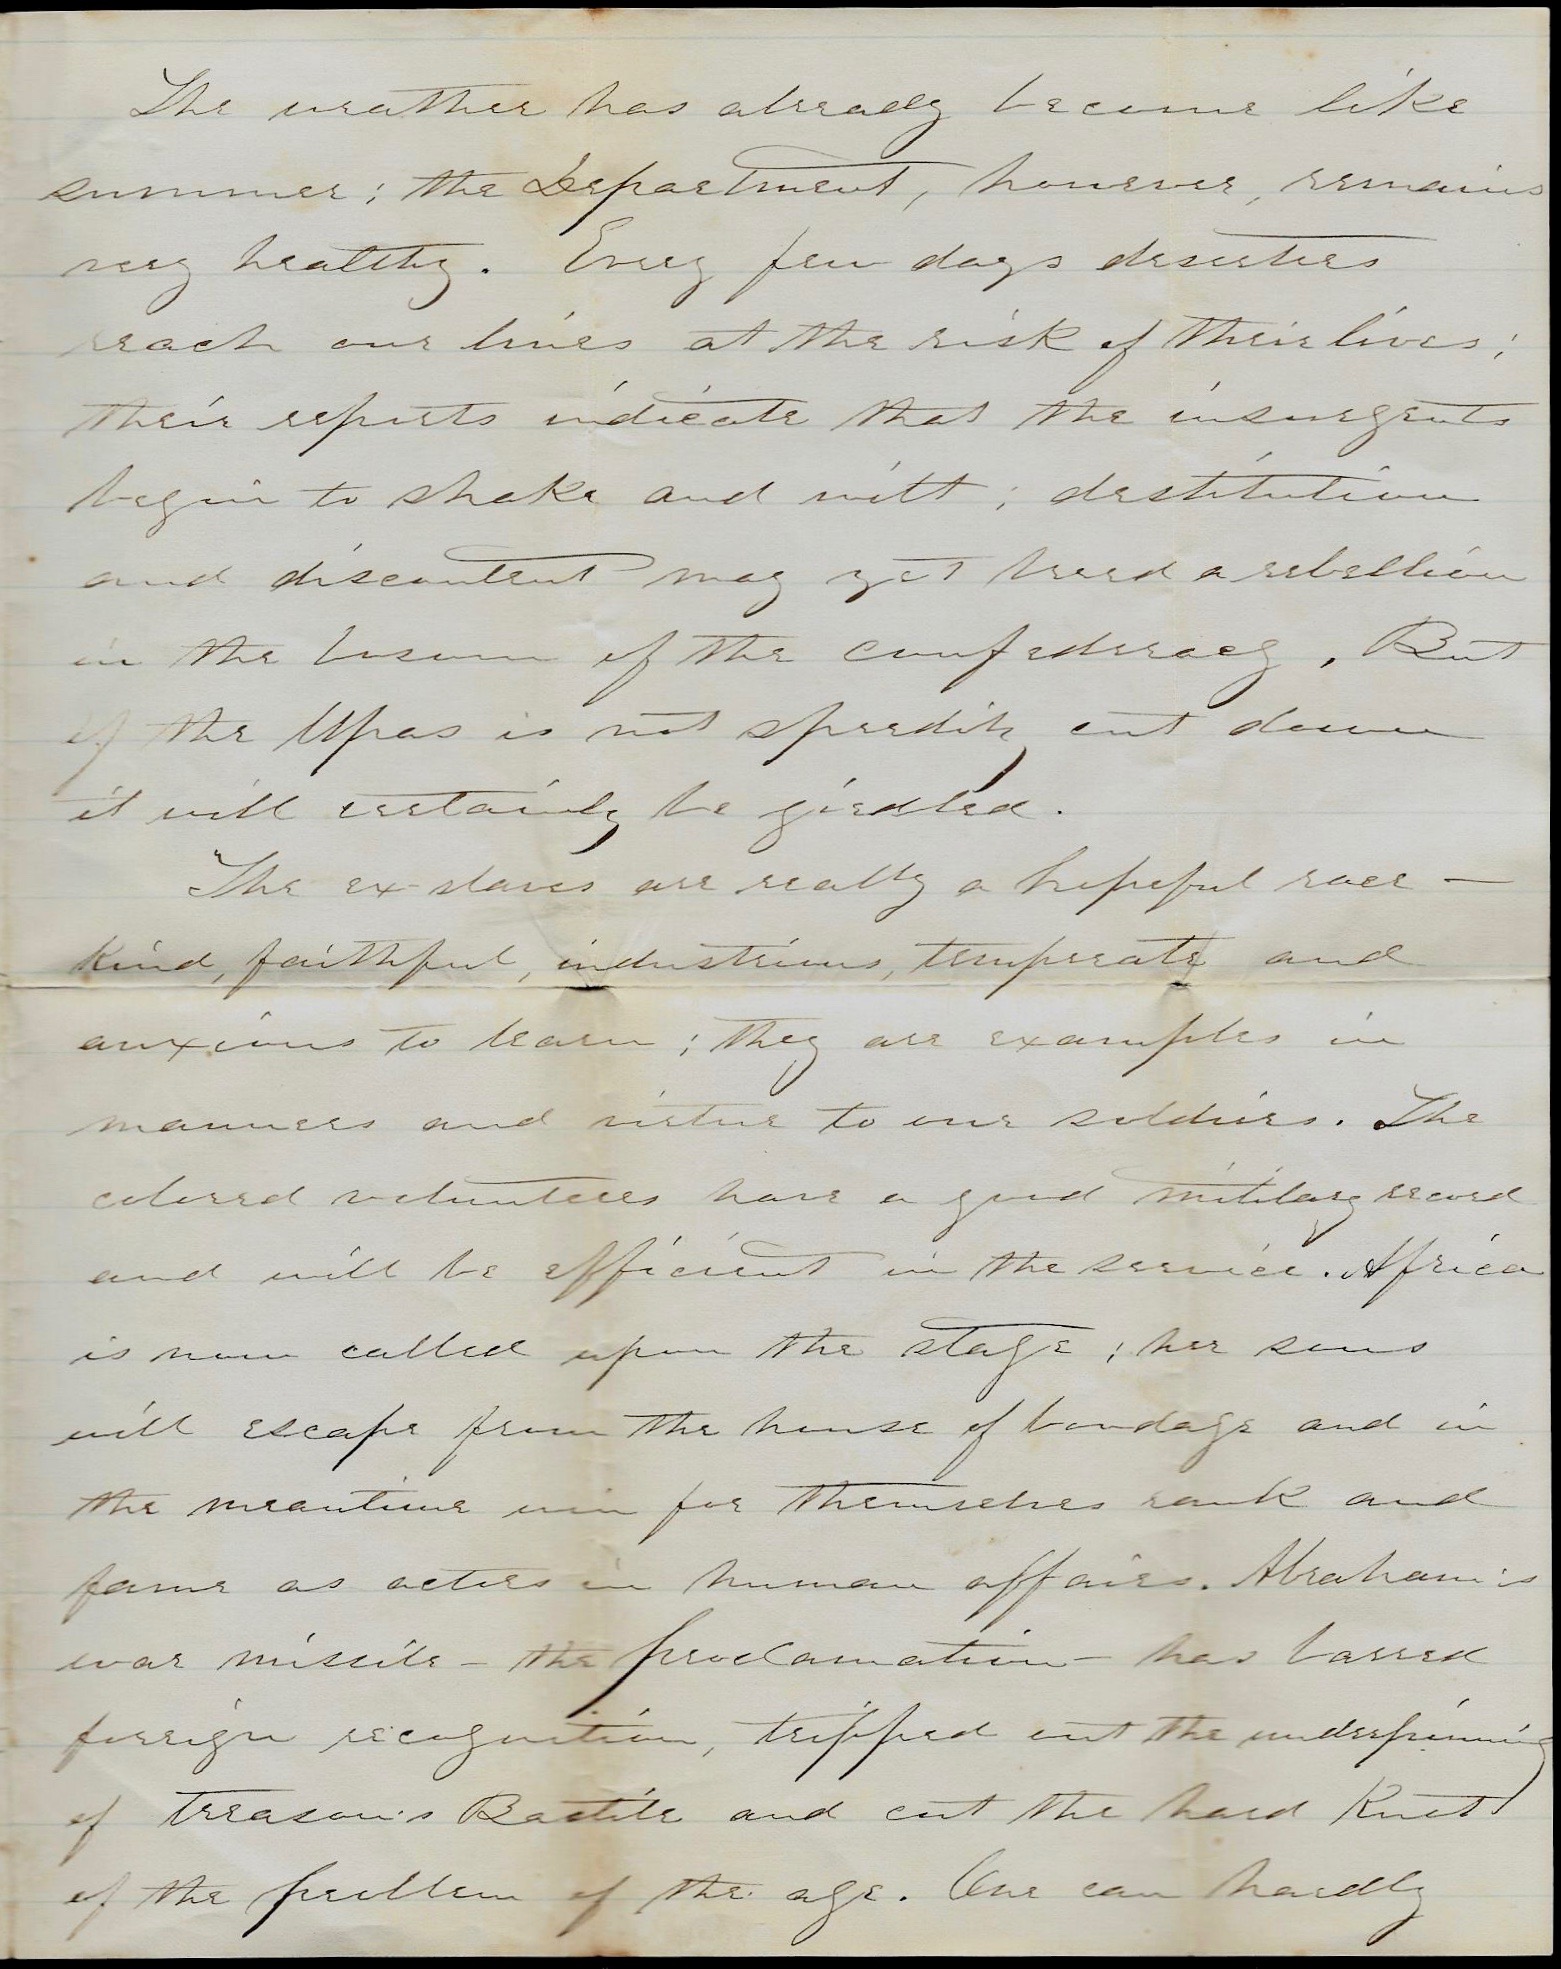 The weather has already become like
summer; the Department, however, remains
very healthy. Every few days deserters
reach our lines at the risk of their lives;
their reports indicate that the insurgents
begin to shake and wilt; destitution
and discontent may yet breed a rebellion
in the bosom of the confederacy. But
if the Upas is not speedily cut down
it will certainly be girdled.
The ex-slaves are really a hopeful race —
kind, faithful, industrious, temperate and
anxious to learn; they are examples in
manners and virtue to our soldiers. The
colored volunteers have a good military record
and will be efficient in the service. Africa
is now called upon the stage; her sons
will escape from the house of bondage and in
the meantime win for themselves rank and
fame as actors in human affairs. Abraham's
war missile - the proclamation - has barred
foreign recognition, tripped out the underpinning
of treason's Bastile and cut the hard Knot
of the problem of the age. One can hardly